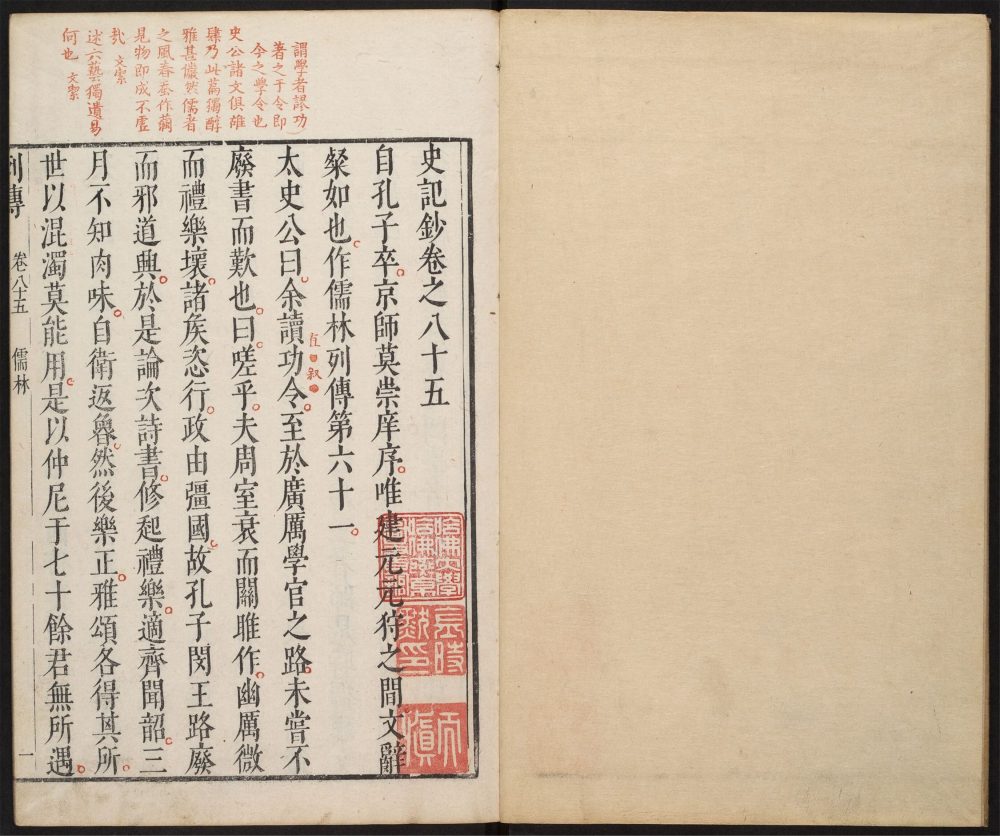 謂學者謬功
著之于令即
今之學令也
史公諸文俱雄
肆乃此篇獨醇
雅甚儼然儒者
之風春蚕作繭
見物即成不虛
哉 文㓗
述六藝獨遺易
何也 文㓗
史記鈔卷之八十五
自孔子卒京師莫崇庠序唯建元元狩之間文辭
粲如也作儒林列傳第六十一
太史公曰余讀功令至於廣厲學官之路未嘗不
廢書而歎也曰嗟乎夫周室衰而關雎作幽厲微
而禮樂壞諸矦恣行政由彊國故孔子閔王路廢
而邪道興於是論次詩書修起禮樂適齊聞韶三
月不知肉味自衛返魯然後樂正雅頌各得其所
世以混濁莫能用是以仲尼于七十餘君無所遇
列傳 卷八十五 儒林 一